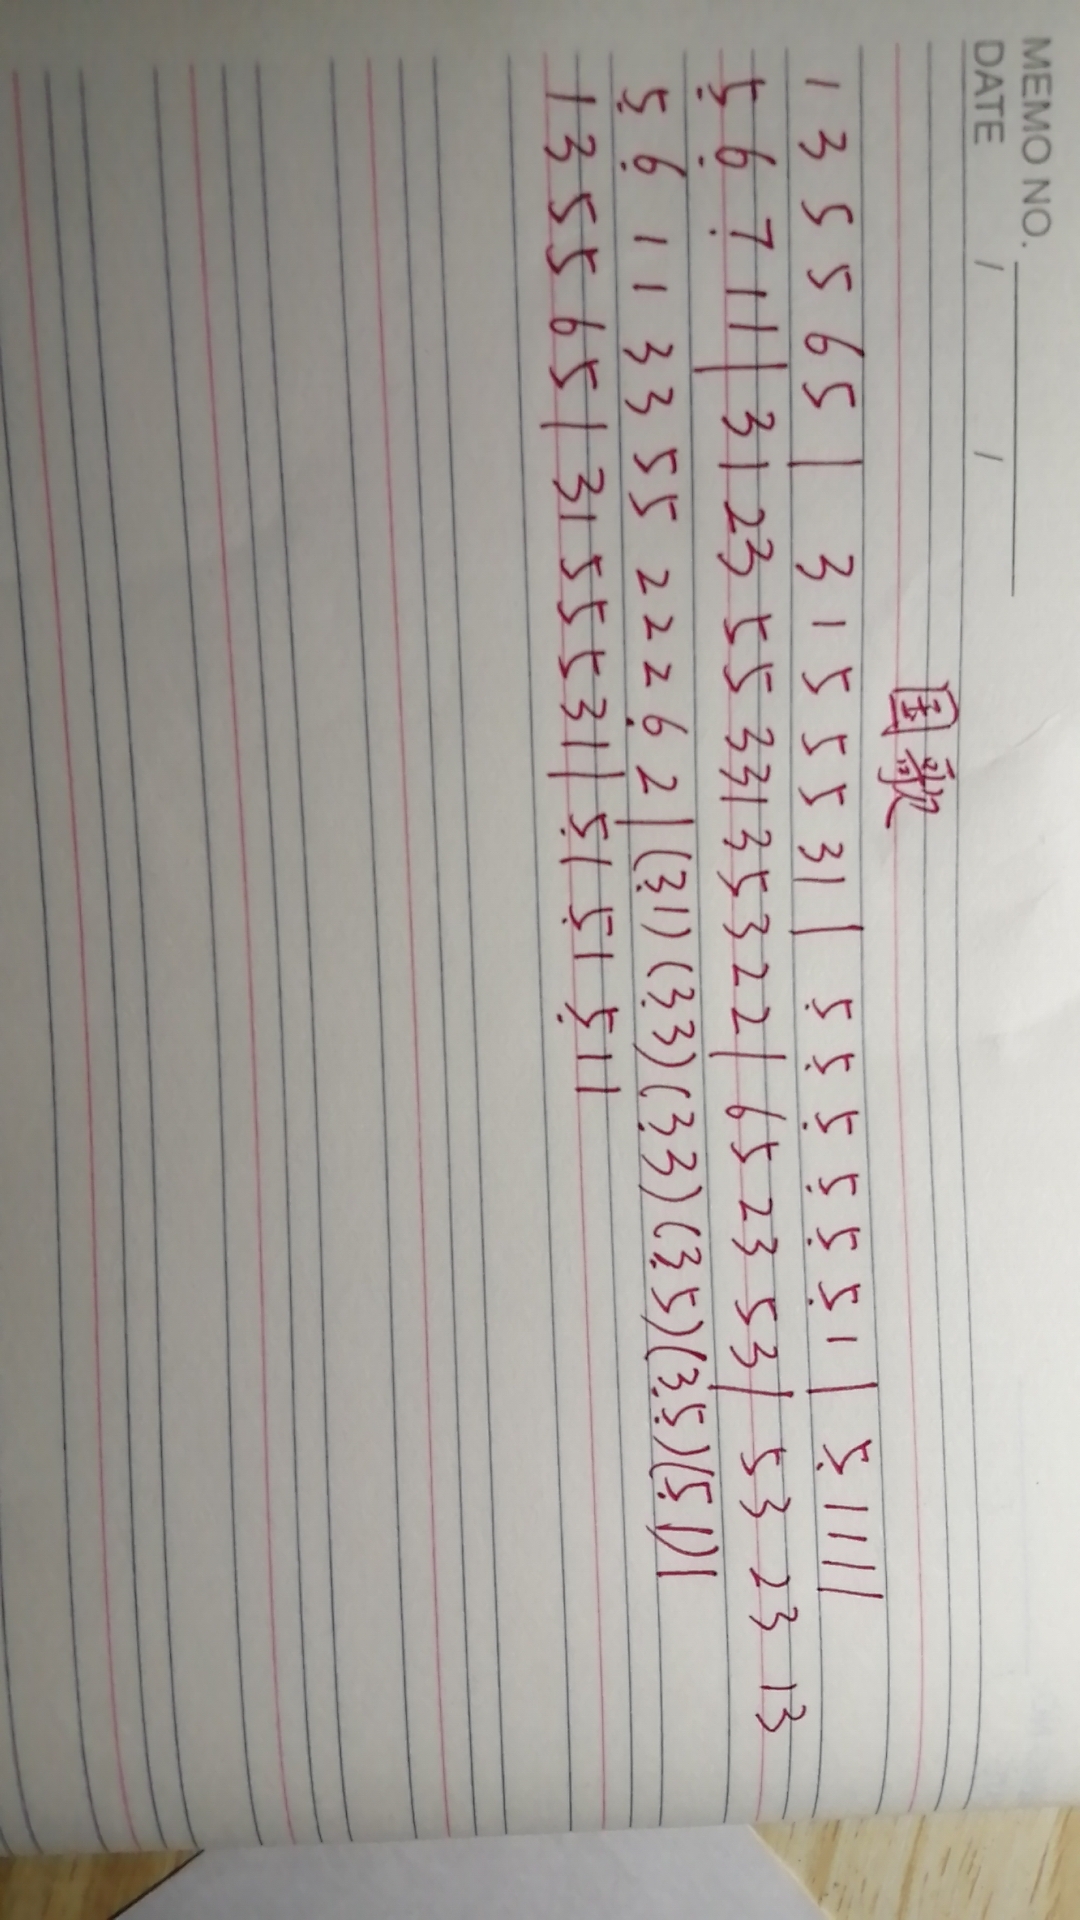 MEMO NO.
DATE / /
国歌
1 3 5 5 6 5 | 3 1 5 5 5 3 1 | 5 5̣ 5̣ 5̣ 5̣ 5̣ 1 | 5̣ 1 1 1 |
5̣ 6̣ 7̣ 1 1 | 3 1 2 3 5 5 3 3 1 3 5 3 2 2 | 6 5 2 3 5 3 | 5 3 2 3 1 3
5̣ 6̣ 1 1 3 3 5 5 2 2 2 6̣ 2 | (3̣ 1) (3̣ 3) (3̣ 3) (3̣ 5) (3̣ 5̣) (5̣ 1) 1
1 3 5 5 6 5 | 3 1 5 5 5 3 1 | 5̣ 1 5̣ 1 5̣ 1 1